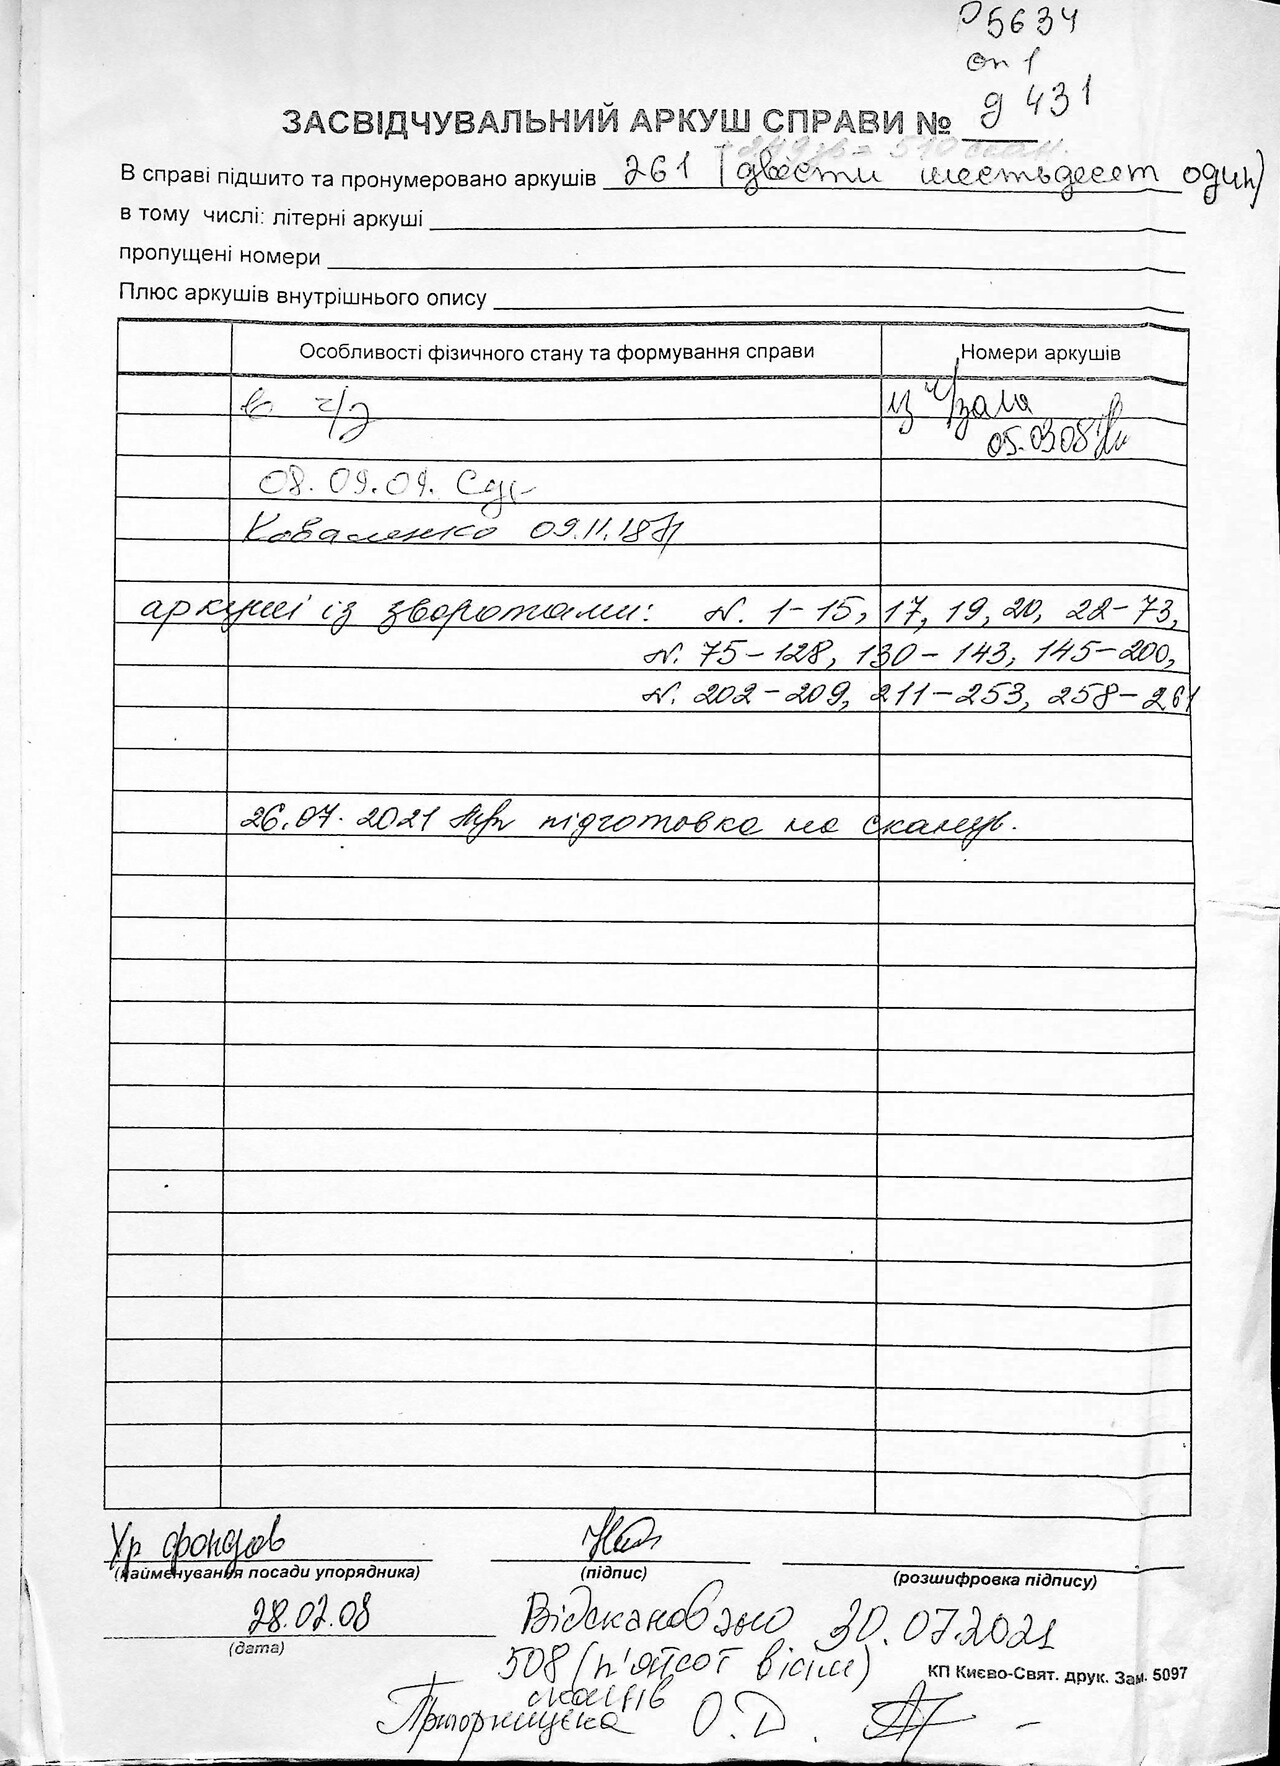 Р5634
оп 1
ЗАСВІДЧУВАЛЬНИЙ АРКУШ СПРАВИ № д 431
249 зв = 510 скан.
В справі підшито та пронумеровано аркушів 261 (двести шестьдесят один)
в тому числі: літерні аркуші
пропущені номери
Плюс аркушів внутрішнього опису
Особливості фізичного стану та формування справи Номери аркушів
в ч/з из ч/зала
05.03.08
08.09.09.
Коваленко 09.11.18
аркуші із зворотами: N. 1-15, 17, 19, 20, 22-73,
N. 75-128, 130-143, 145-200,
N. 202-209, 211-253, 258-261
26.07.2021 підготовка на сканув.
Хр фондов
(найменування посади упорядника) (підпис) (розшифровка підпису)
28.02.08 Відскановано 30.07.2021
(дата)
508 (п'ятсот вісім) КП Києво-Свят. друк. Зам. 5097
сканів
О.Д.